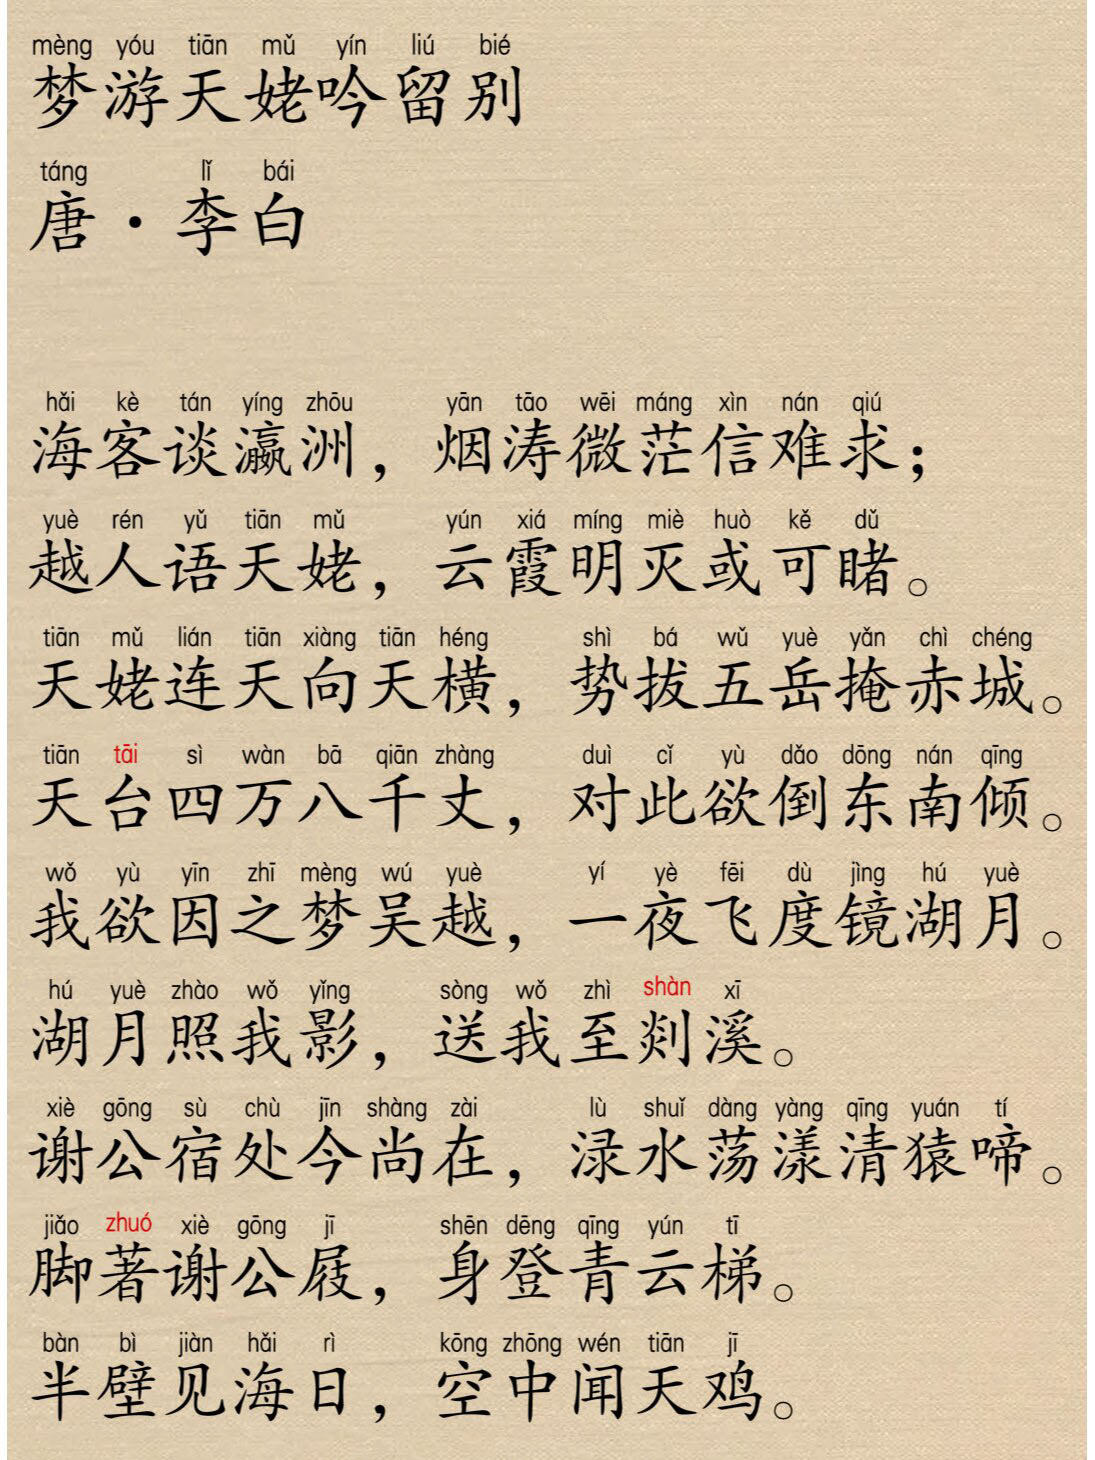 mèng yóu tiān mǔ yín liú bié
梦游天姥吟留别
táng lǐ bái
唐·李白
hǎi kè tán yíng zhōu yān tāo wēi máng xìn nán qiú
海客谈瀛洲，烟涛微茫信难求；
yuè rén yǔ tiān mǔ yún xiá míng miè huò kě dǔ
越人语天姥，云霞明灭或可睹。
tiān mǔ lián tiān xiàng tiān héng shì bá wǔ yuè yǎn chì chéng
天姥连天向天横，势拔五岳掩赤城。
tiān tāi sì wàn bā qiān zhàng duì cǐ yù dǎo dōng nán qīng
天台四万八千丈，对此欲倒东南倾。
wǒ yù yīn zhī mèng wú yuè yí yè fēi dù jìng hú yuè
我欲因之梦吴越，一夜飞度镜湖月。
hú yuè zhào wǒ yǐng sòng wǒ zhì shàn xī
湖月照我影，送我至剡溪。
xiè gōng sù chù jīn shàng zài lù shuǐ dàng yàng qīng yuán tí
谢公宿处今尚在，渌水荡漾清猿啼。
jiǎo zhuó xiè gōng jī shēn dēng qīng yún tī
脚著谢公屐，身登青云梯。
bàn bì jiàn hǎi rì kōng zhōng wén tiān jī
半壁见海日，空中闻天鸡。